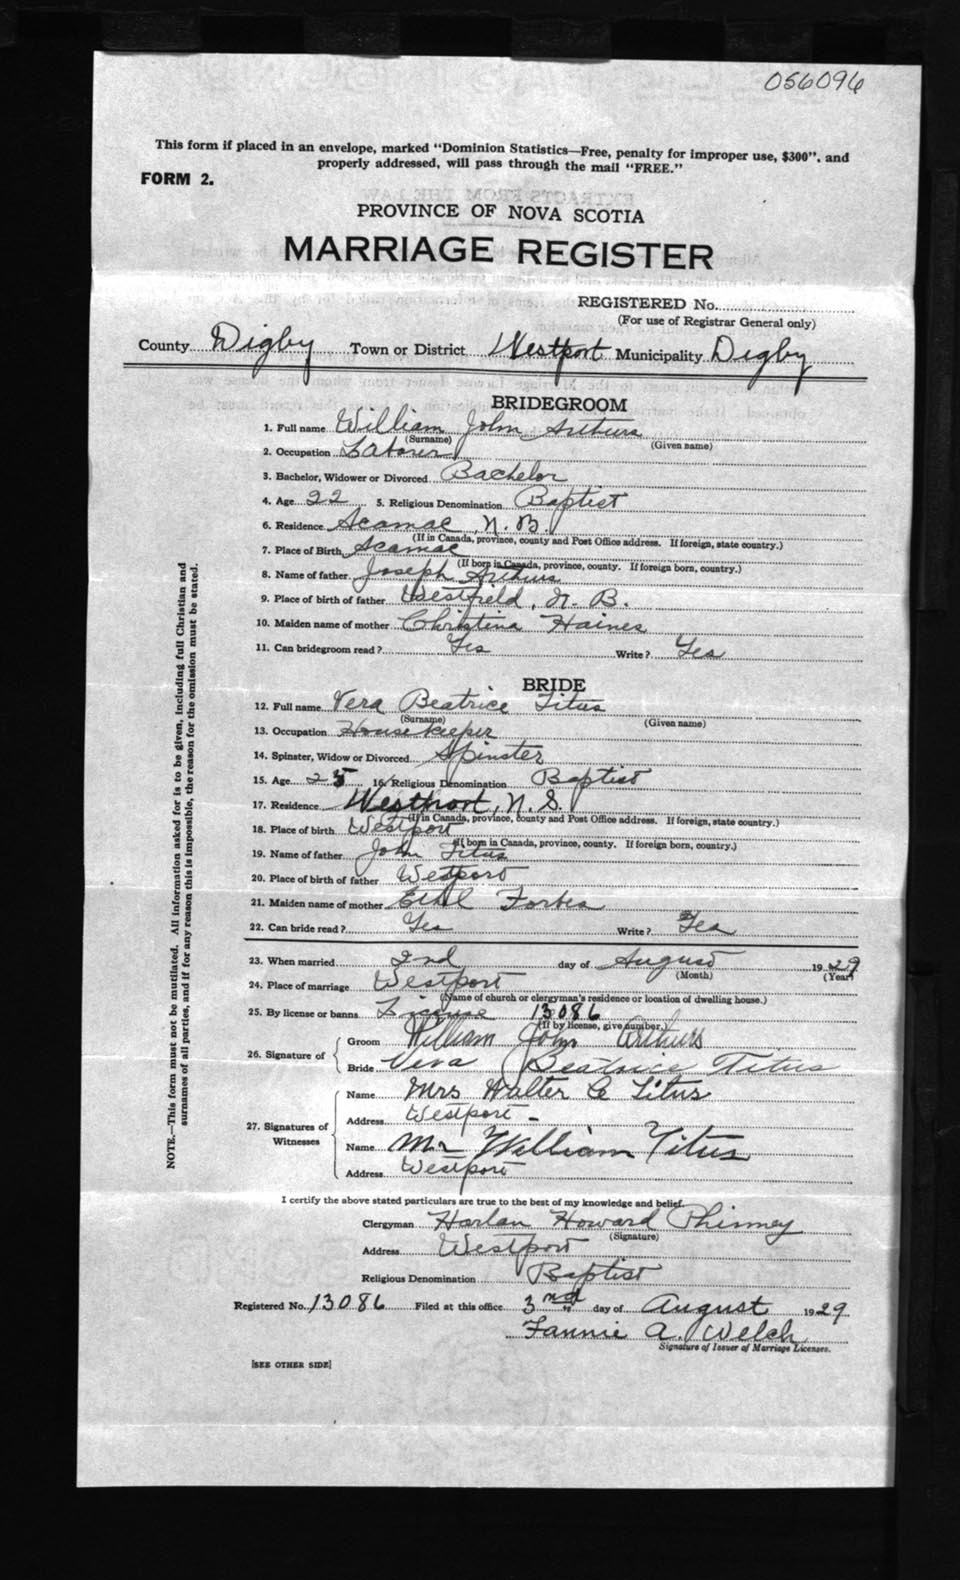 056096
This form if placed in an envelope, marked "Dominion Statistics—Free, penalty for improper use, $300", and
properly addressed, will pass through the mail "FREE."
FORM 2.
PROVINCE OF NOVA SCOTIA
MARRIAGE REGISTER
REGISTERED No.
(For use of Registrar General only)
County Digby Town or District Westport Municipality Digby
BRIDEGROOM
1. Full name William John Arthurs
(Surname) (Given name)
2. Occupation Laborer
3. Bachelor, Widower or Divorced Bachelor
4. Age 22 5. Religious Denomination Baptist
6. Residence Acamac, N. B.
(If in Canada, province, county and Post Office address. If foreign, state country.)
7. Place of Birth Acamac
(If born in Canada, province, county. If foreign born, country.)
8. Name of father Joseph Arthurs
9. Place of birth of father Westfield, N. B.
10. Maiden name of mother Christina Haines
11. Can bridegroom read? Yes Write? Yes
BRIDE
12. Full name Vera Beatrice Titus
(Surname) (Given name)
13. Occupation Housekeeper
14. Spinster, Widow or Divorced Spinster
15. Age 25 16. Religious Denomination Baptist
17. Residence Westport, N. S.
(If in Canada, province, county and Post Office address. If foreign, state country.)
18. Place of birth Westport
(If born in Canada, province, county. If foreign born, country.)
19. Name of father John Titus
20. Place of birth of father Westport
21. Maiden name of mother Ethel Forbes
22. Can bride read? Yes Write? Yes
23. When married 2nd day of August 1929
(Month) (Year)
24. Place of marriage Westport
(Name of church or clergyman's residence or location of dwelling house.)
25. By license or banns License 13086
(If by license, give number.)
26. Signature of Groom William John Arthurs
Bride Vera Beatrice Titus
27. Signatures of Witnesses
Name Mrs Walter C Titus
Address Westport -
Name Mr William Titus
Address Westport
I certify the above stated particulars are true to the best of my knowledge and belief.
Clergyman Harlan Howard Phinney
(Signature)
Address Westport
Religious Denomination Baptist
Registered No. 13086 Filed at this office 3nd day of August 1929
Fannie A. Welch
Signature of Issuer of Marriage Licenses.
[SEE OTHER SIDE]
NOTE.—This form must not be mutilated. All information asked for is to be given, including full Christian and
surnames of all parties, and if for any reason this is impossible, the reason for the omission must be stated.